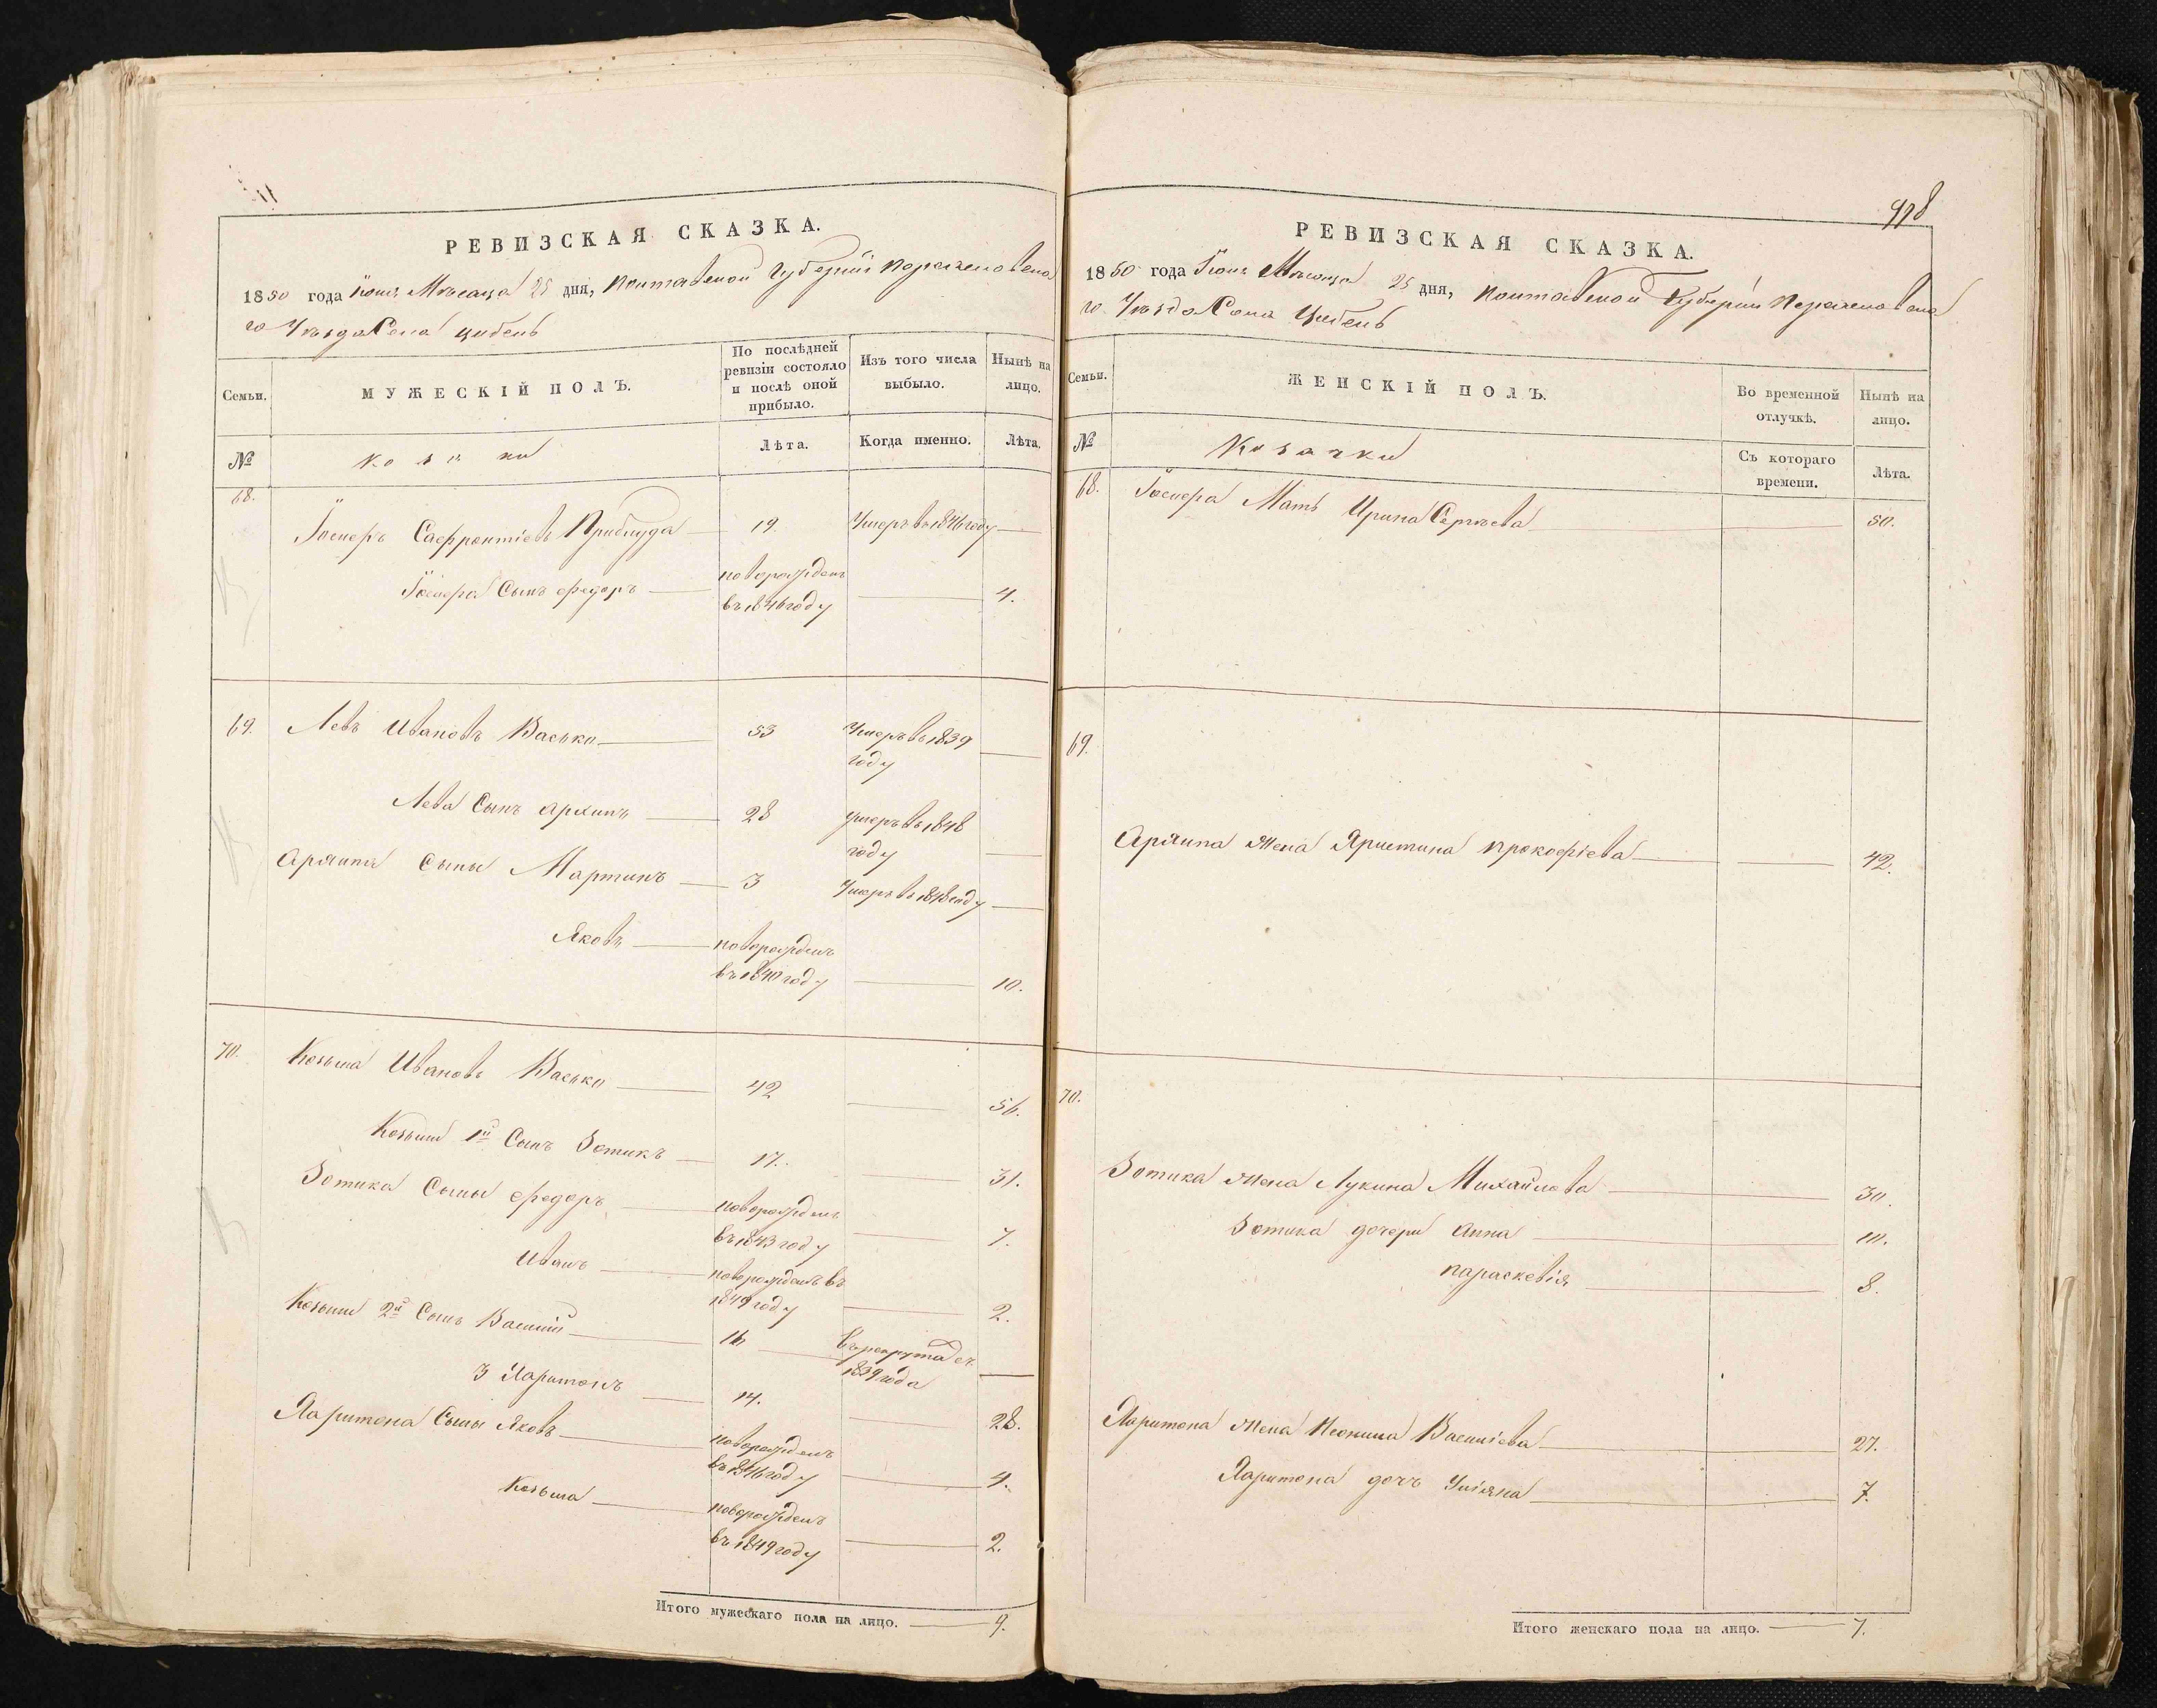 РЕВИЗСКАЯ СКАЗКА.
1850 года Іюня Мѣсяца 25 дня, Полтавской Губерніи Переяслова
го Уѣзда Села Цибель
Семьи.
МУЖЕСКІЙ ПОЛЪ.
По послѣдней ревизіи состояло и послѣ оной прибыло.
Изъ того числа выбыло.
Нынѣ на лицо.
№
Козаки
Лѣта.
Когда именно.
Лѣта.
68.
Приблуда 19. Умеръ въ 1846 году
Сынъ Федоръ новорожденъ
въ 1846 году 4.
69. Левъ Ивановъ Васько 53 Умеръ въ 1839
году
Лева Сынъ Архипъ 28 умеръ въ 1848
году
Архипа Сыны Мартинъ 3 Умеръ въ 1848 году
Яковъ новорожденъ
въ 1840 году 10.
70. Козьма Ивановъ Васько 42 56.
Козьмы 1й Сынъ Зотикъ 17. 31.
Зотика Сыны Федоръ новорожденъ
въ 1843 году 7.
Иванъ новорожденъ въ
1849 году 2.
Козьмы 2й Сынъ Василій 16 въ рекрутахъ съ
1839 года
3 Харитонъ 14. 28.
Харитона Сыны Яковъ новорожденъ
въ 1846 году 4.
Козьма новорожденъ
въ 1849 году 2.
Итого мужескаго пола на лицо. 9.
978
РЕВИЗСКАЯ СКАЗКА.
1850 года Іюня Мѣсяца 25 дня, Полтавской Губерніи Переяслова
го Уѣзда Села Цибель
Семьи.
ЖЕНСКІЙ ПОЛЪ.
Во временной отлучкѣ.
Нынѣ на лицо.
№
Козачки
Съ котораго времени.
Лѣта.
68. Мать Ирина Сергѣева 50.
69.
Архипа Жена Христина Прокофіева 42.
70.
Зотика Жена Лукина Михайлова 30.
Зотика дочери Анна 10.
Параскевія 8.
Харитона Жена Васильева 27.
Харитона дочь Уліяна 7.
Итого женскаго пола на лицо. 7.